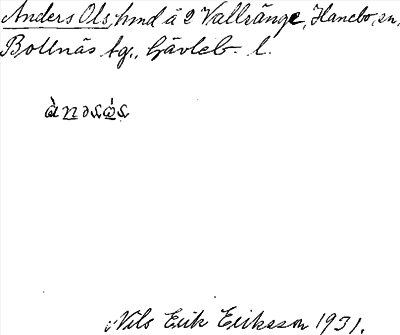 Anders Ols, hmd å 2 Vallränge, Hanebo, sn,
Bollnäs tg., Gävleb. l.
ànəsω̇s
Nils Erik Eriksson 1931.